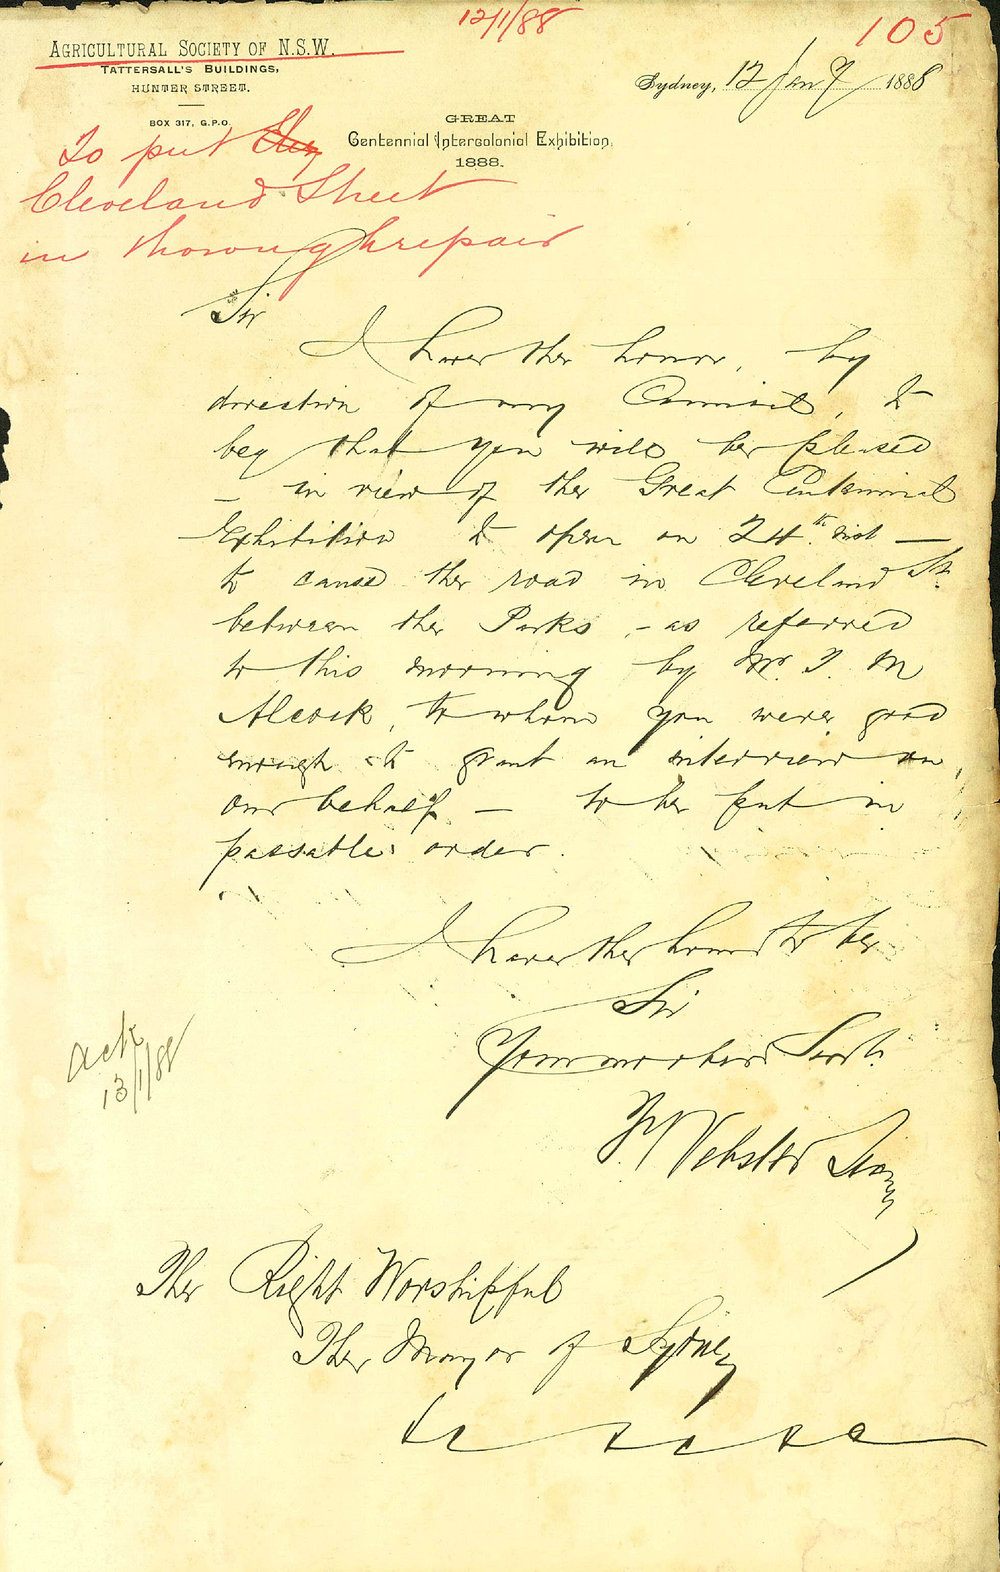 12/1/88
105
AGRICULTURAL SOCIETY OF N.S.W.
TATTERSALL'S BUILDINGS,
HUNTER STREET.
BOX 317, G.P.O.
Sydney, 12 Jany 1888
GREAT
Centennial Intercolonial Exhibition,
1888.
To put Clev
Cleveland Street
in thorough repair
Sir
I have the honor, by
direction of my Council, to
beg that you will be pleased
– in view of the Great Centennial
Exhibition to open on 24th inst –
to cause the road in Cleveland St.
between the Parks, – as referred
to this morning by Mr. T. M
Alcock, to whom you were good
enough to grant an interview on
our behalf – to be put in
passable order.
I have the honor to be
Sir
Your most obedt Servt.
F. Webster Secy
ack
13/1/88
The Right Worshipful
The Mayor of Sydney
&c &c &c